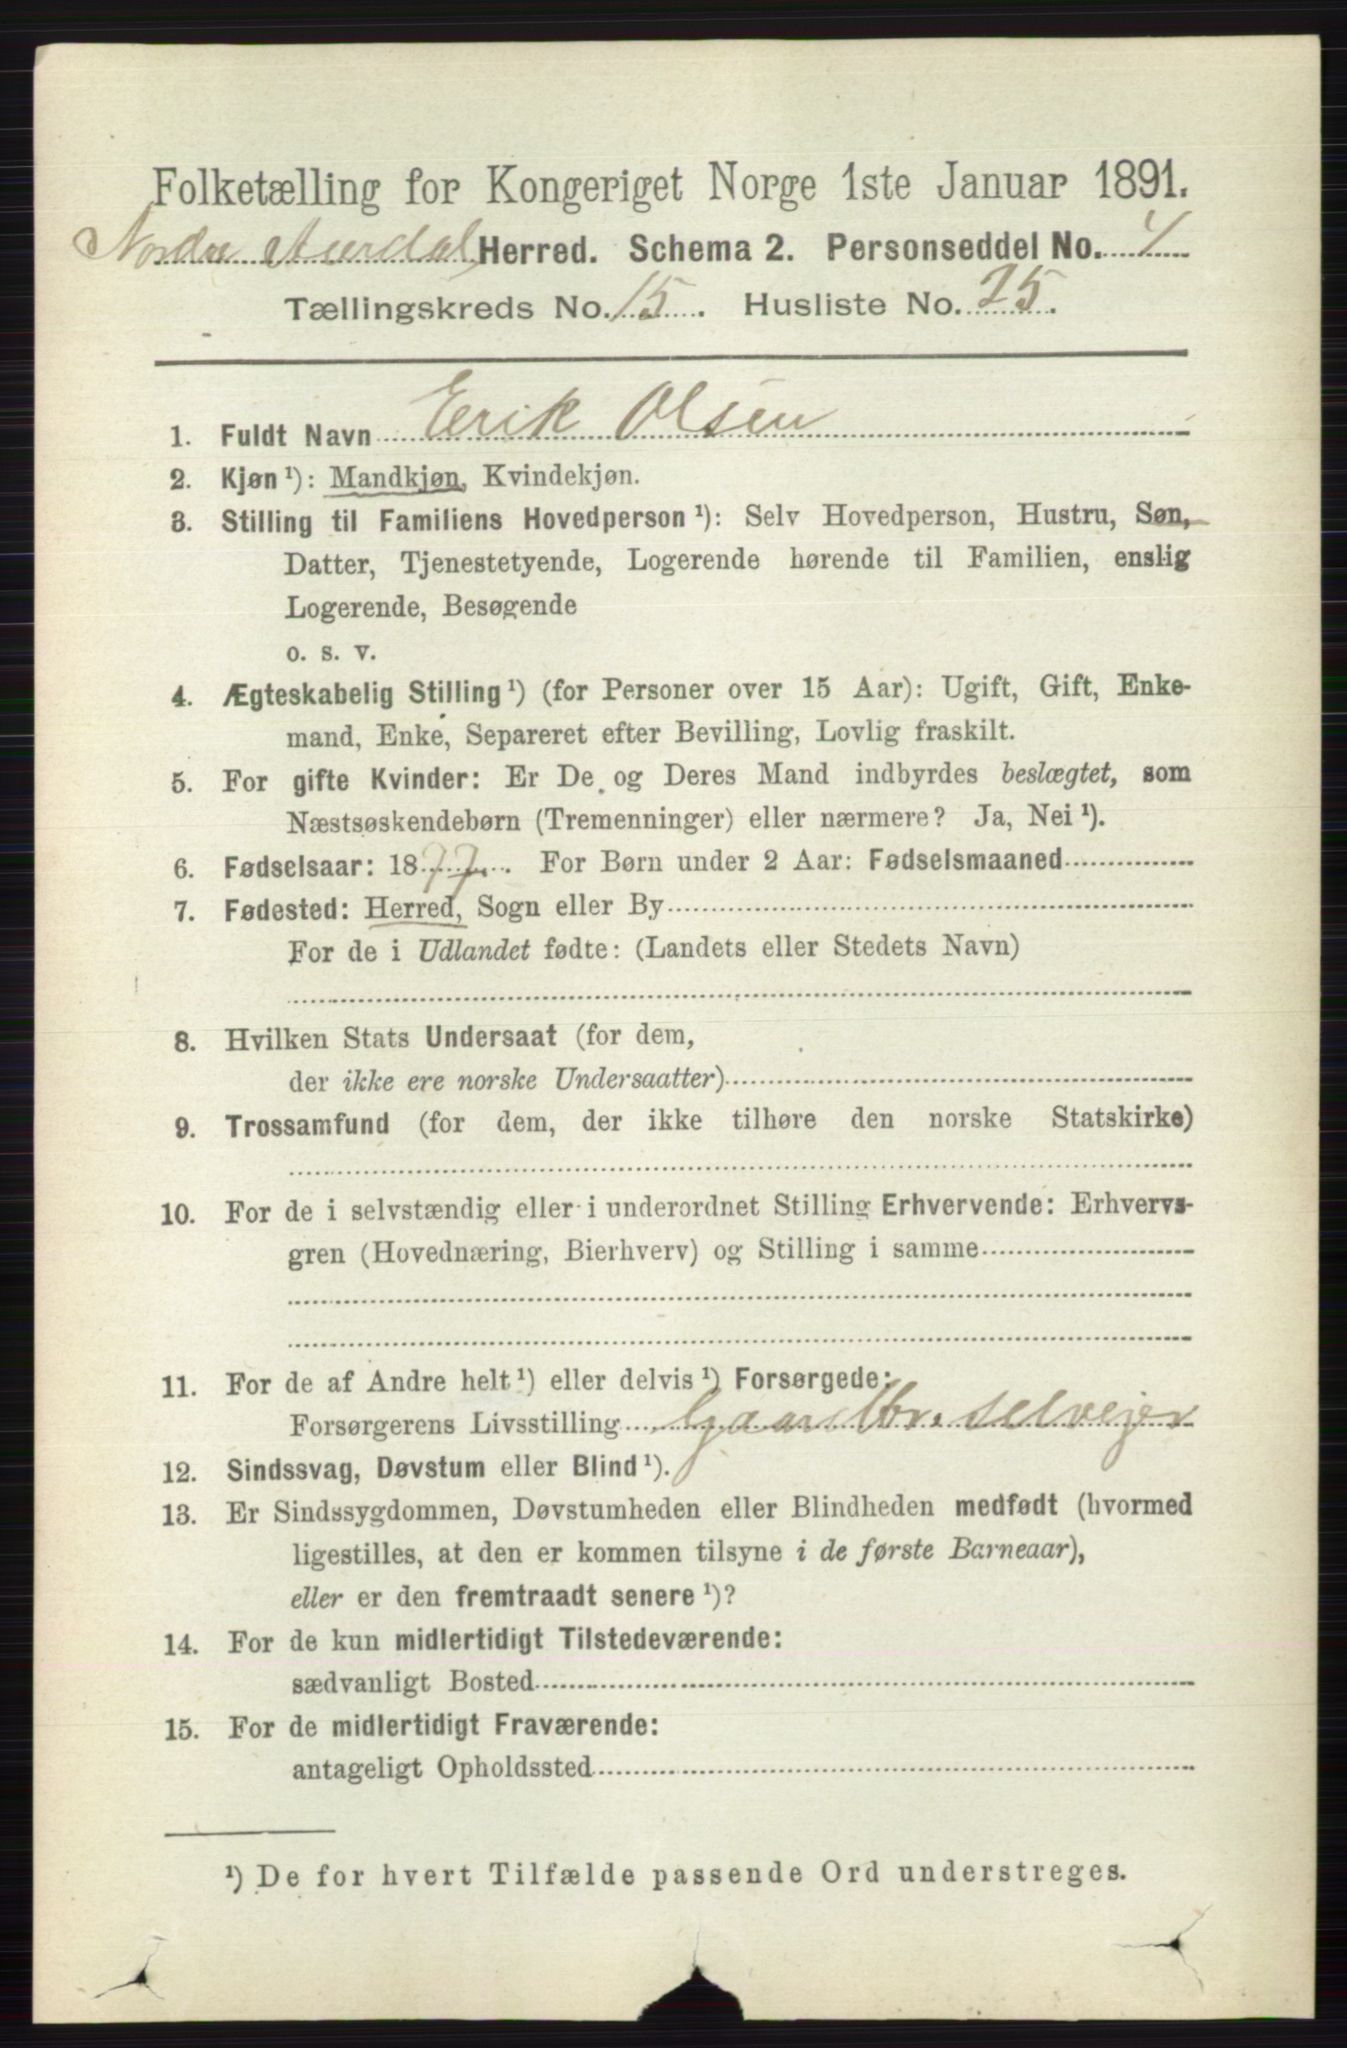 Folketælling for Kongeriget Norge 1ste Januar 1891.
Nordre Aurdal Herred. Schema 2. Personseddel No. 4
Tællingskreds No. 15. Husliste No. 25.
1. Fuldt Navn Erik Olsen
2. Kjøn ¹): Mandkjøn, Kvindekjøn.
3. Stilling til Familiens Hovedperson ¹): Selv Hovedperson, Hustru, Søn,
Datter, Tjenestetyende, Logerende hørende til Familien, enslig
Logerende, Besøgende
o. s. v.
4. Ægteskabelig Stilling ¹) (for Personer over 15 Aar): Ugift, Gift, Enke-
mand, Enke, Separeret efter Bevilling, Lovlig fraskilt.
5. For gifte Kvinder: Er De og Deres Mand indbyrdes beslægtet, som
Næstsøskendebørn (Tremenninger) eller nærmere? Ja, Nei ¹).
6. Fødselsaar: 1877. For Børn under 2 Aar: Fødselsmaaned
7. Fødested: Herred, Sogn eller By
For de i Udlandet fødte: (Landets eller Stedets Navn)
8. Hvilken Stats Undersaat (for dem,
der ikke ere norske Undersaatter)
9. Trossamfund (for dem, der ikke tilhøre den norske Statskirke)
10. For de i selvstændig eller i underordnet Stilling Erhvervende: Erhvervs-
gren (Hovednæring, Bierhverv) og Stilling i samme
11. For de af Andre helt ¹) eller delvis ¹) Forsørgede:
Forsørgerens Livsstilling Gaardbr. selveier
12. Sindssvag, Døvstum eller Blind ¹).
13. Er Sindssygdommen, Døvstumheden eller Blindheden medfødt (hvormed
ligestilles, at den er kommen tilsyne i de første Barneaar),
eller er den fremtraadt senere ¹)?
14. For de kun midlertidigt Tilstedeværende:
sædvanligt Bosted
15. For de midlertidigt Fraværende:
antageligt Opholdssted
¹) De for hvert Tilfælde passende Ord understreges.